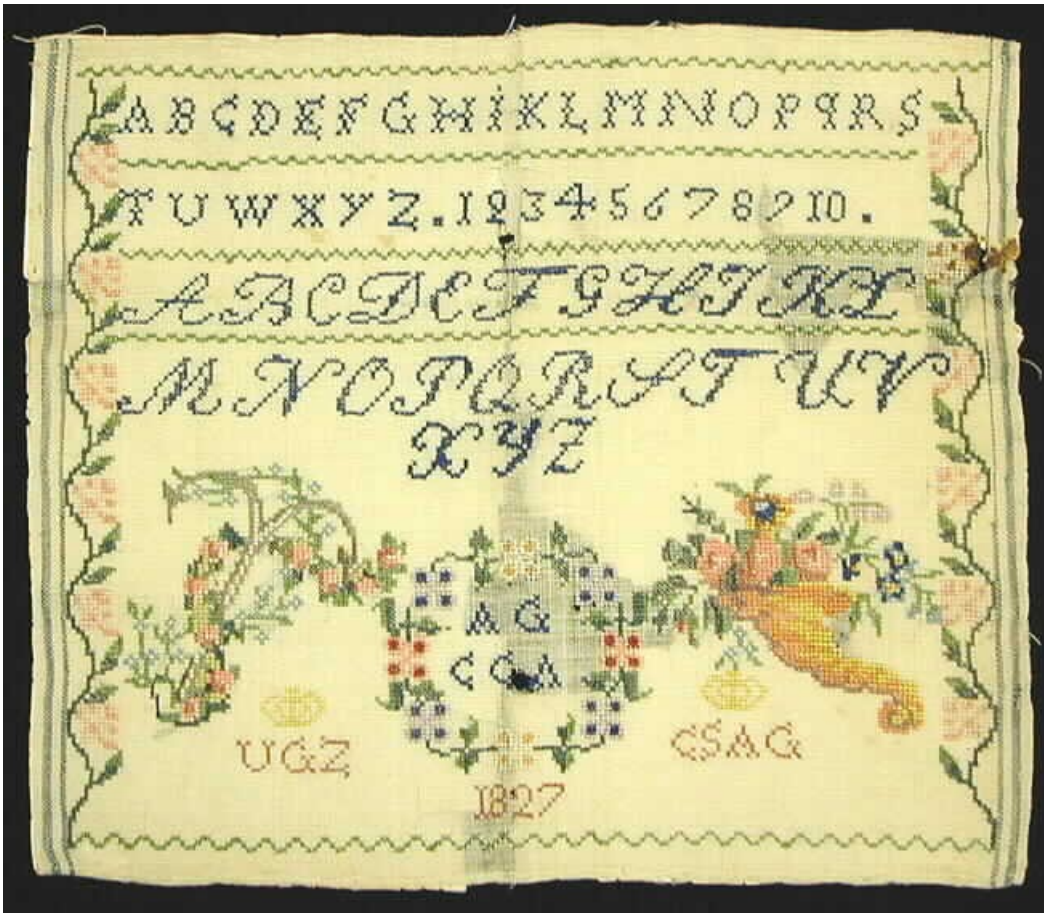 A B C D E F G H I K L M N O P Q R S
T U W X Y Z . 1 2 3 4 5 6 7 8 9 10 .
A B C D E F G H I K L
M N O P Q R S T U V
X Y Z
A G
C G A
UGZ
CSAG
1827